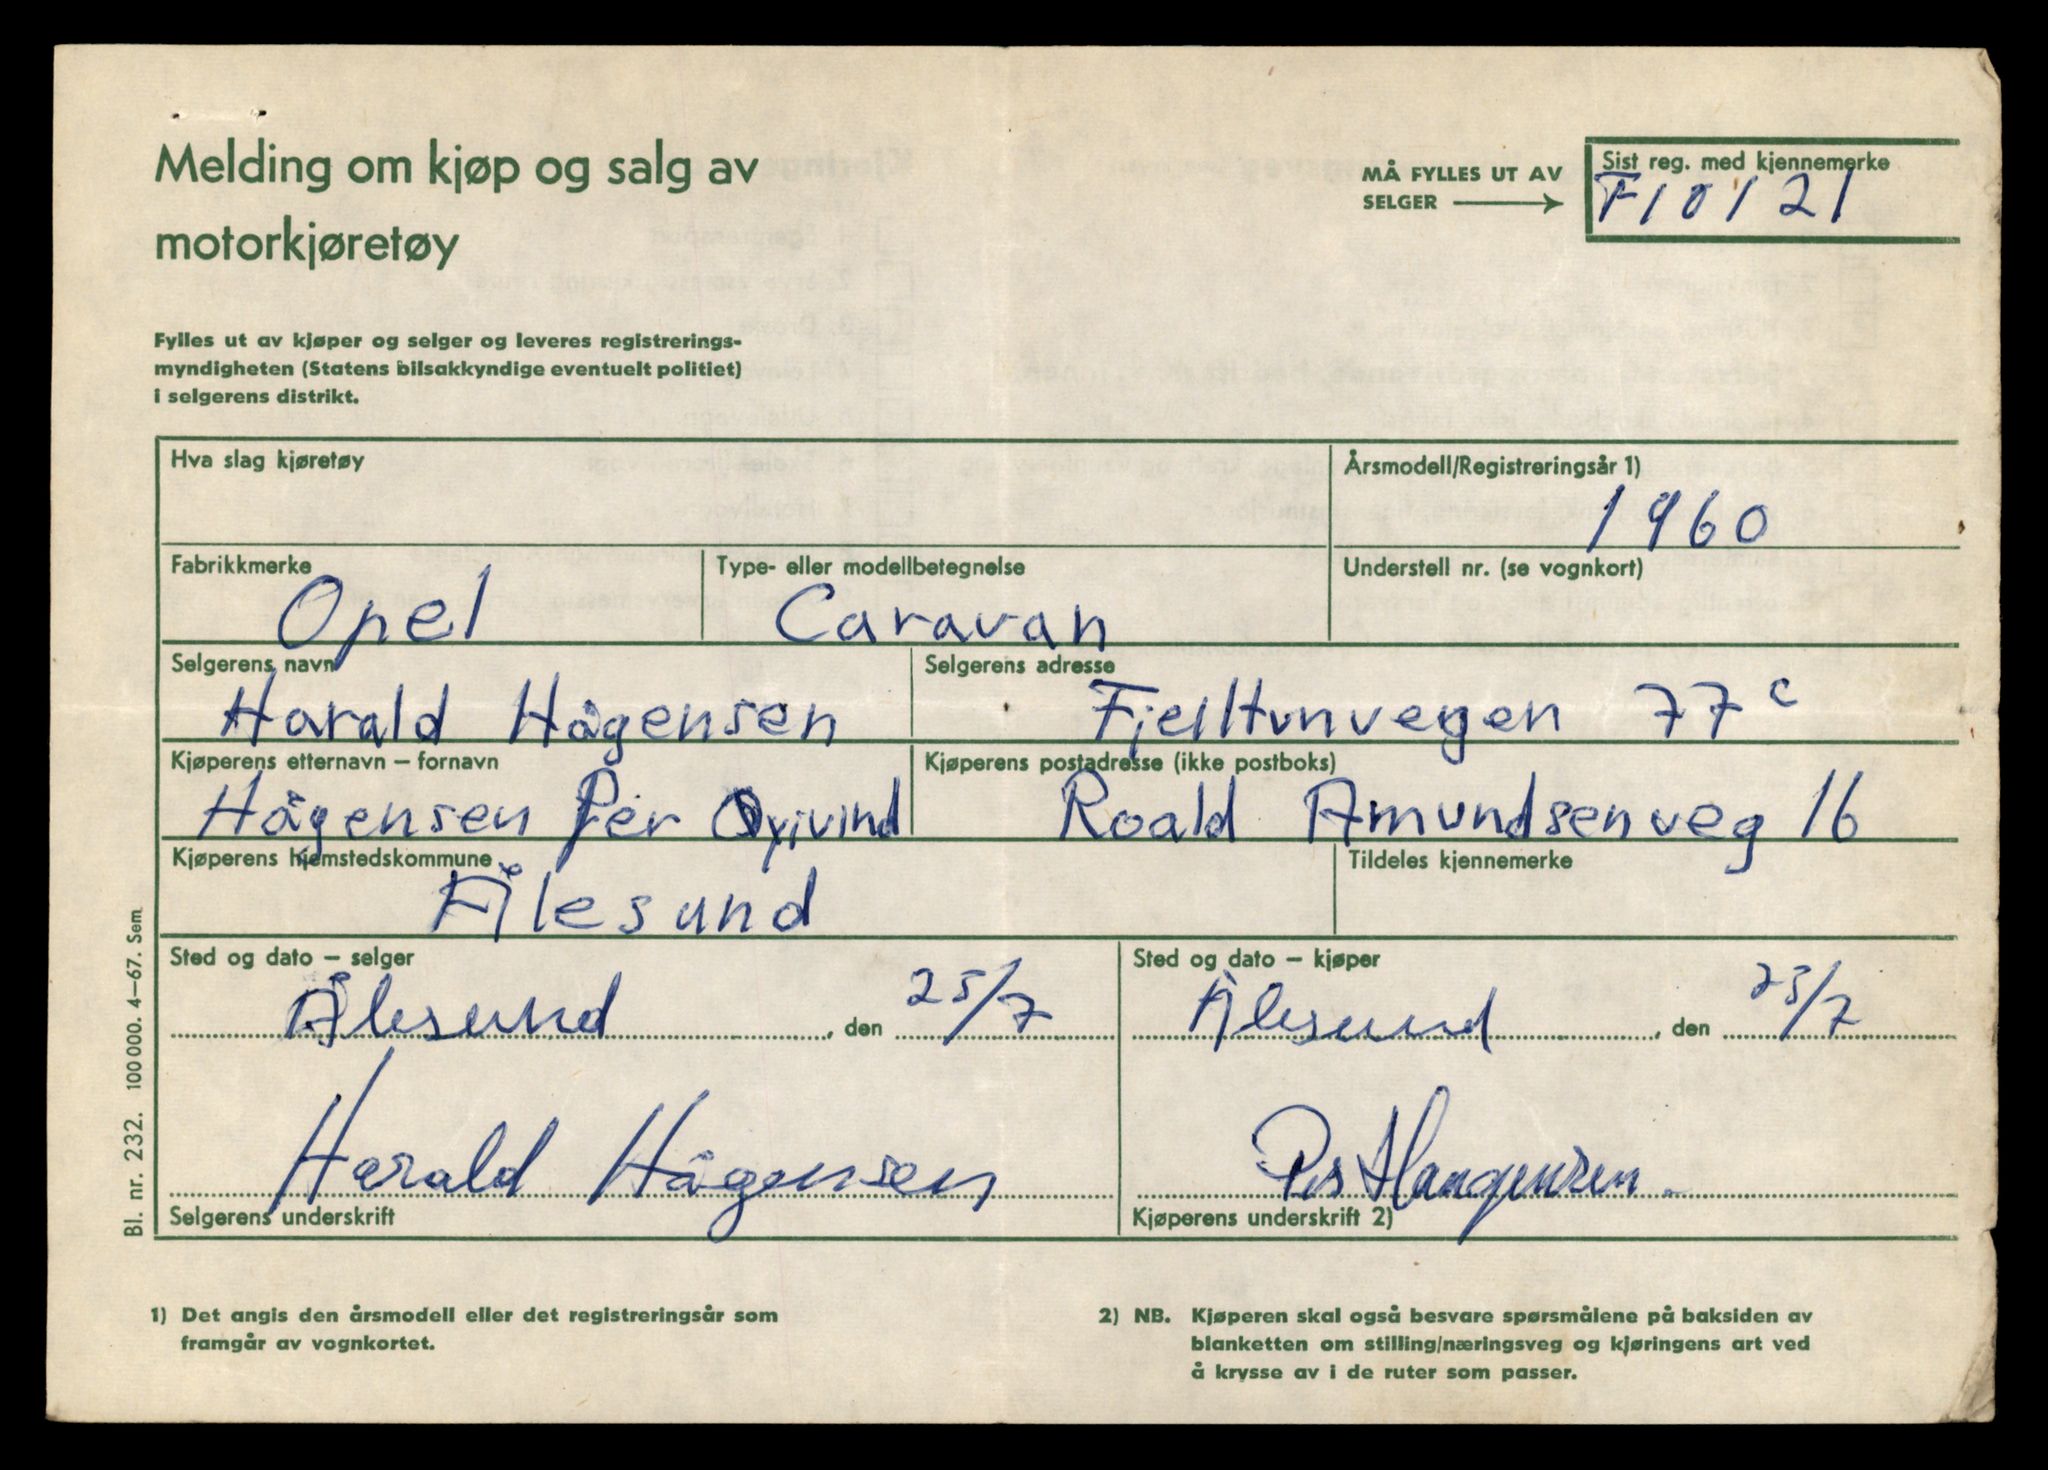 Melding om kjøp og salg av
motorkjøretøy
MÅ FYLLES UT AV
SELGER
Sist reg. med kjennemerke
F10121
Fylles ut av kjøper og selger og leveres registrerings-
myndigheten (Statens bilsakkyndige eventuelt politiet)
i selgerens distrikt.
Hva slag kjøretøy
Årsmodell/Registreringsår 1)
1960
Fabrikkmerke
Opel
Type- eller modellbetegnelse
Caravan
Understell nr. (se vognkort)
Selgerens navn
Harald Hågensen
Selgerens adresse
Fjelltunvegen 77c
Kjøperens etternavn – fornavn
Hågensen Per Oyvind
Kjøperens postadresse (ikke postboks)
Roald Amundsenveg 16
Kjøperens hjemstedskommune
Ålesund
Tildeles kjennemerke
Sted og dato – selger
Ålesund, den 25/7
Sted og dato – kjøper
Ålesund, den 25/7
Harald Hågensen
Selgerens underskrift
Per Haagensen.
Kjøperens underskrift 2)
Bl. nr. 232. 100 000. 4–67. Sem
1) Det angis den årsmodell eller det registreringsår som
framgår av vognkortet.
2) NB. Kjøperen skal også besvare spørsmålene på baksiden av
blanketten om stilling/næringsveg og kjøringens art ved
å krysse av i de ruter som passer.